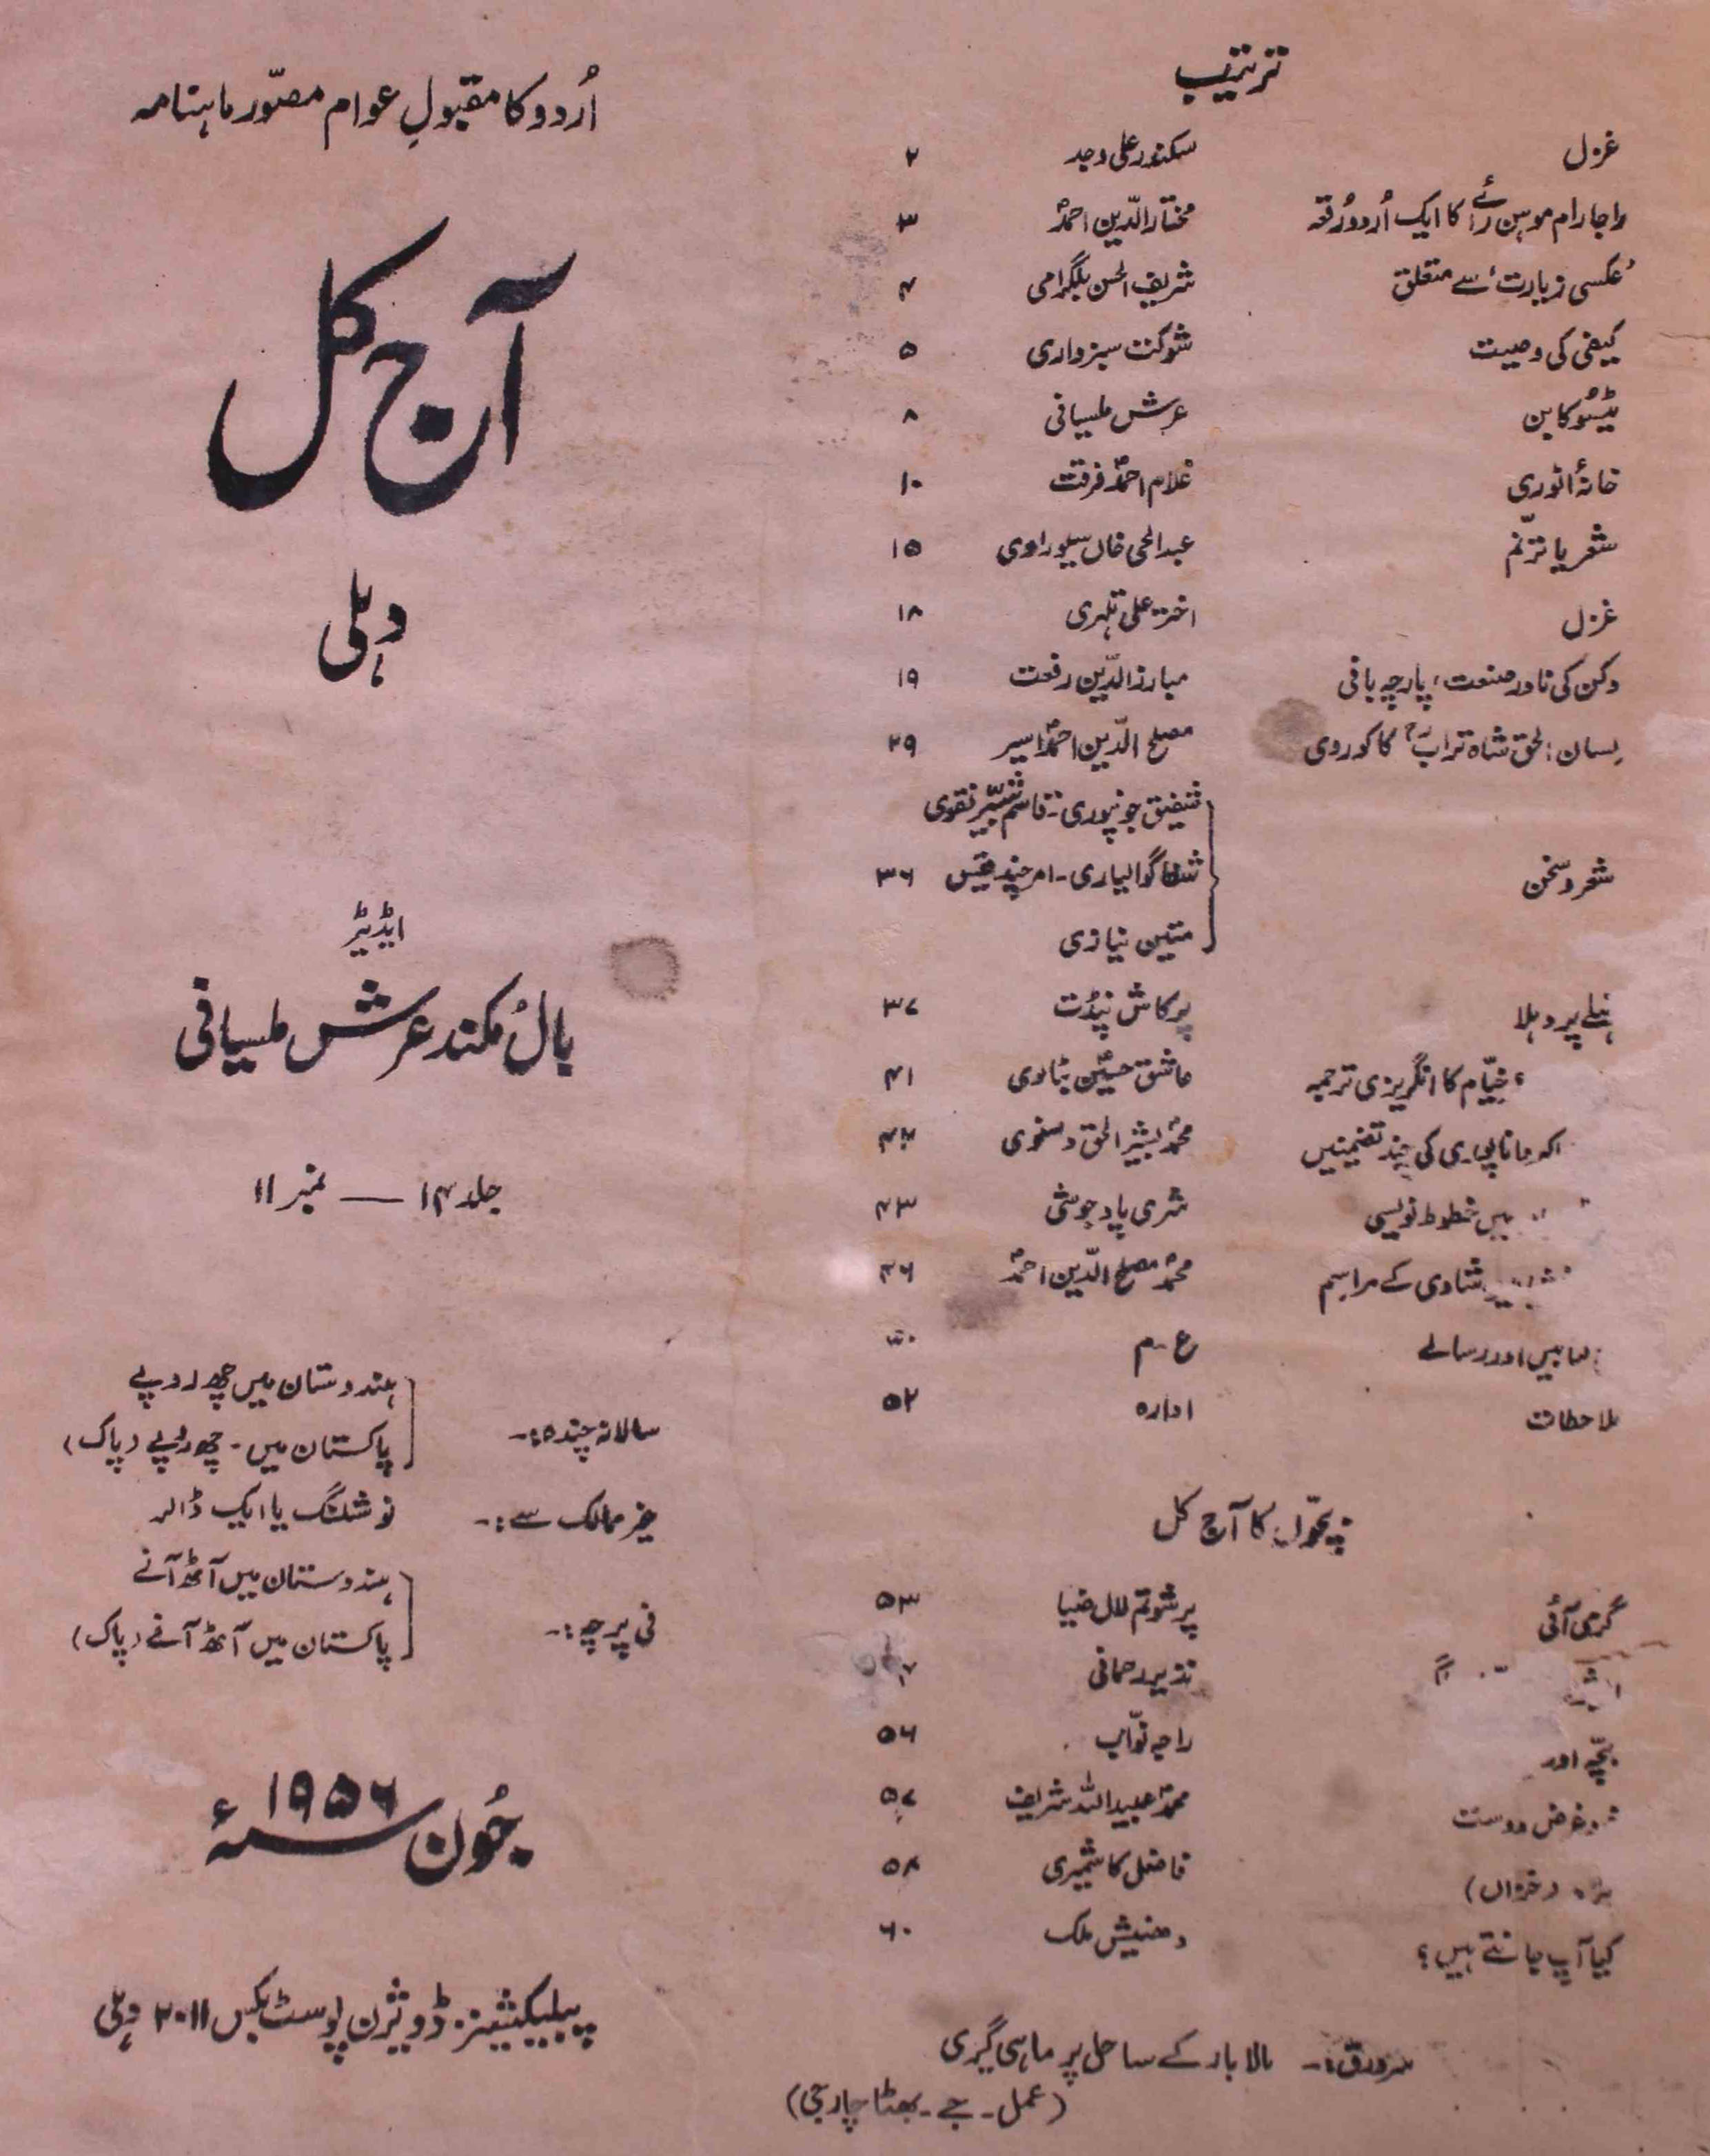 ترتیب
غزل سکندر علی وجد ۲
راجا رام موہن رائے کا ایک اُردو رُقعہ مختار الدّین احمد ۳
'عکسی زیارت' سے متعلق شریف الحسن بلگرامی ۴
کیفی کی وصیت شوکت سبزواری ۵
ٹیسُو کا بن عرش ملسیانی ۸
خانۂ انوری غلام احمد فرقت ۱۰
شعر یا ترنّم عبدالحی خاں سیوراوی ۱۵
غزل اختر علی تلہری ۱۸
دکن کی نادر صنعت، پارچہ بافی مبارز الدّین رفعت ۱۹
لسان الحق شاہ تراب کاکوروی مصلح الدّین احمد اسیر ۲۹
شفیق جونپوری - قاسم شبیر نقوی
شعر و سخن شفا گوالیاری - امر چند قیس ۳۶
متین نیازی
نہلے پر دہلا پرکاش پنڈت ۳۷
خیّام کا انگریزی ترجمہ عاشق حسین بٹالوی ۴۱
کی چند تضمینیں محمد بشیر الحق دسنوی ۴۲
میں خطوط نویسی شری پاد جوشی ۴۳
شادی کے مراسم محمد مصلح الدّین احمد ۴۶
اور رسالے ع - م ۵۰
ملاحظات ادارہ ۵۲
بچّوں کا آج کل
گرمی آئی پرشوتم لال ضیا ۵۳
نذیر رحمانی
بچّہ اور راجہ نوّاب ۵۶
خود غرض دوست محمد عبیداللہ شریف ۵۷
(خزاں) فاضل کاشمیری ۵۸
کیا آپ جانتے ہیں؟ دھنیش ملک ۶۰
سرورق :- مالابار کے ساحل پر ماہی گیری
(عمل - جے - بھٹاچارجی)
اُردو کا مقبولِ عوام مصوّر ماہنامہ
آج کل
دہلی
ایڈیٹر
بالُ مکند عرش ملسیانی
جلد ۱۴ — نمبر ۱۱
سالانہ چندہ :- ہندوستان میں چھ روپے
پاکستان میں - چھ روپے (پاک)
غیر ممالک سے :- نو شلنگ یا ایک ڈالر
فی پرچہ :- ہندوستان میں آٹھ آنے
پاکستان میں آٹھ آنے (پاک)
جُون سنہ ۱۹۵۶ء
پبلیکیشنز ڈویژن پوسٹ بکس ۲۰۱۱ دہلی